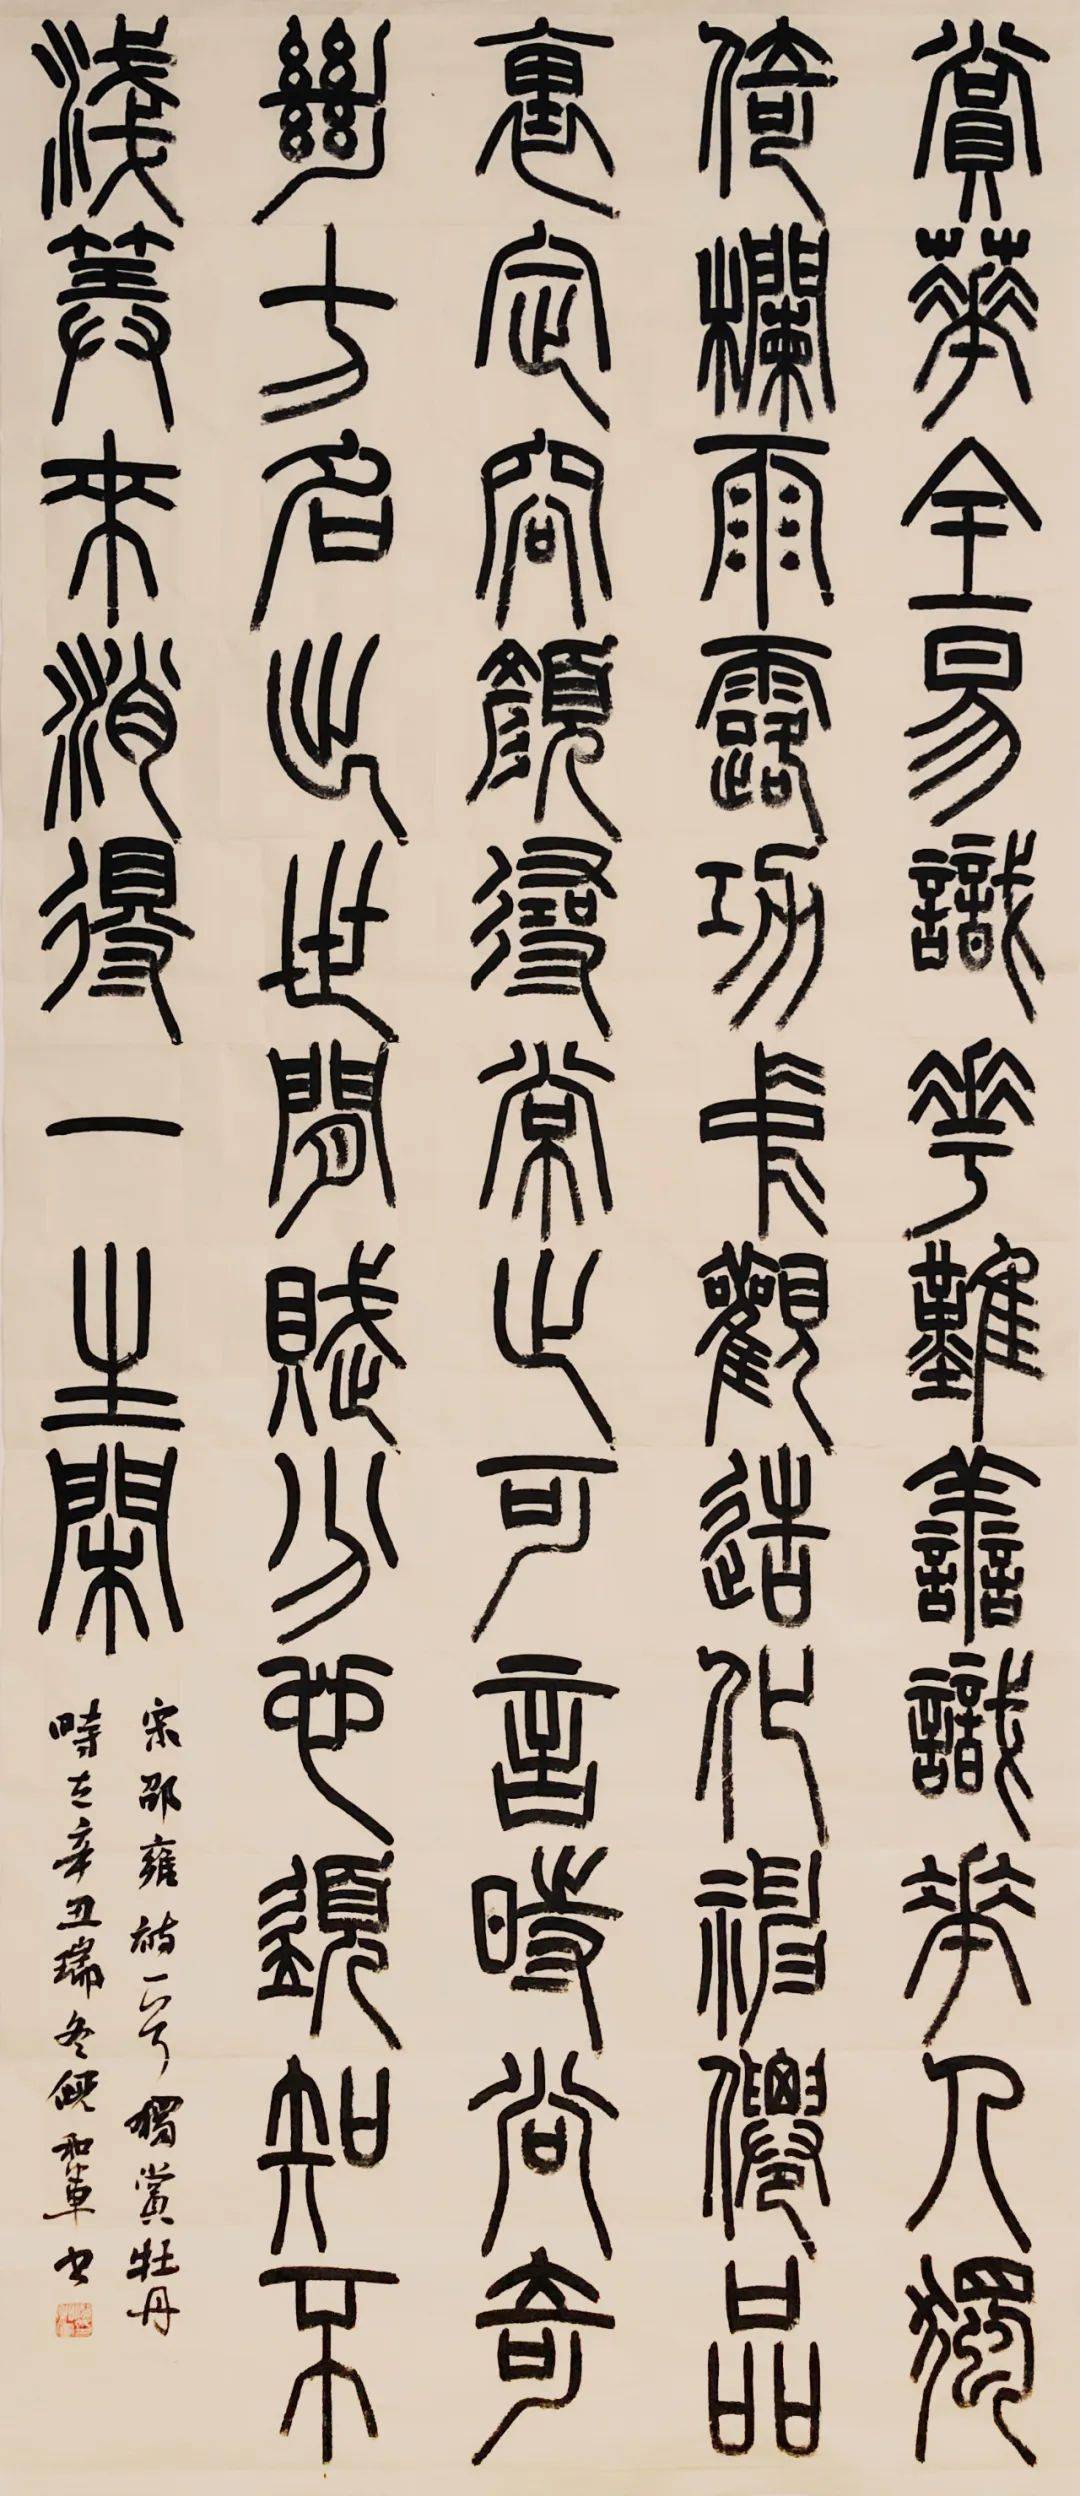 賞華全易識花難善識華人獨
倚欄雨露功中觀造化神僊品
裏定容顏尋常止可言時尚奇
絕方名出世間賦分也須知不
淺算來消得一生閑
宋邵雍詩一首獨賞牡丹
時在辛丑瑞冬倪和軍書